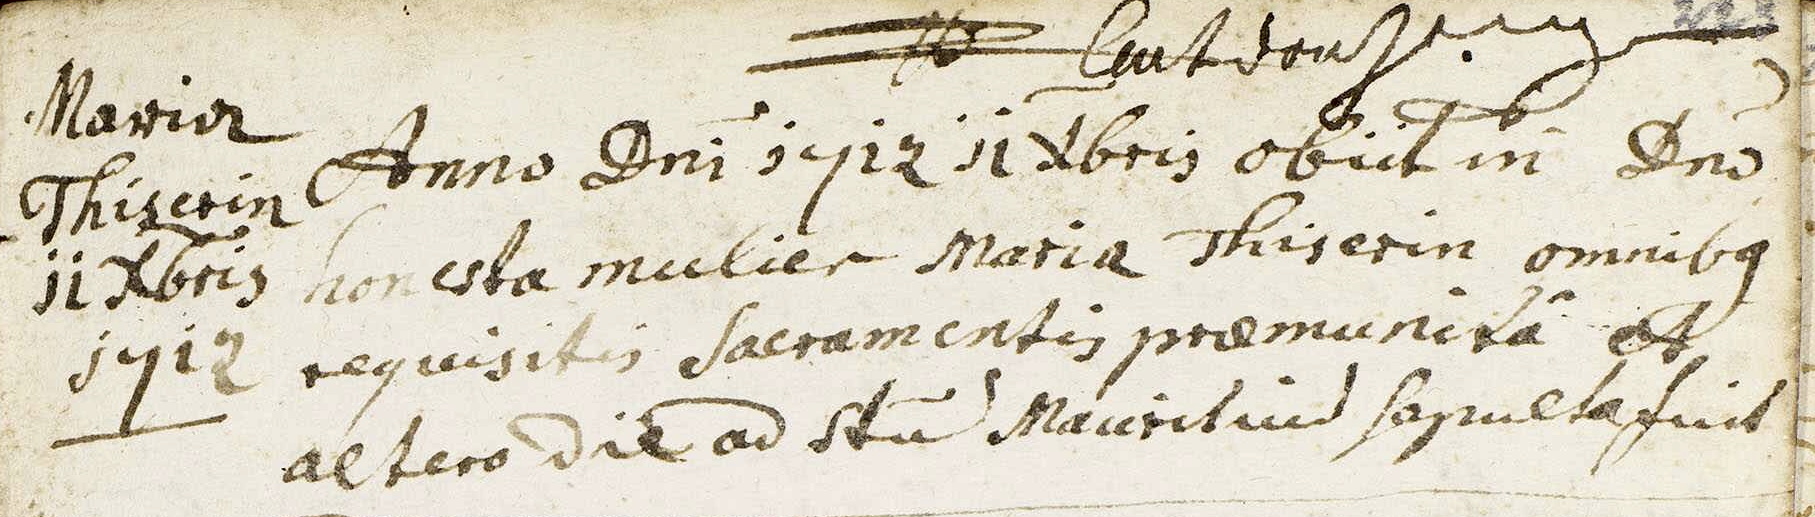 Maria
Thiserin
11 Xbris
1712
Anno Dni 1712 11 Xbris obiit in Dno
honesta mulier Maria Thiserin omnibq
requisitis Sacramentis præmunita et
altero die ad Stu Mauritiu sepulta fuit